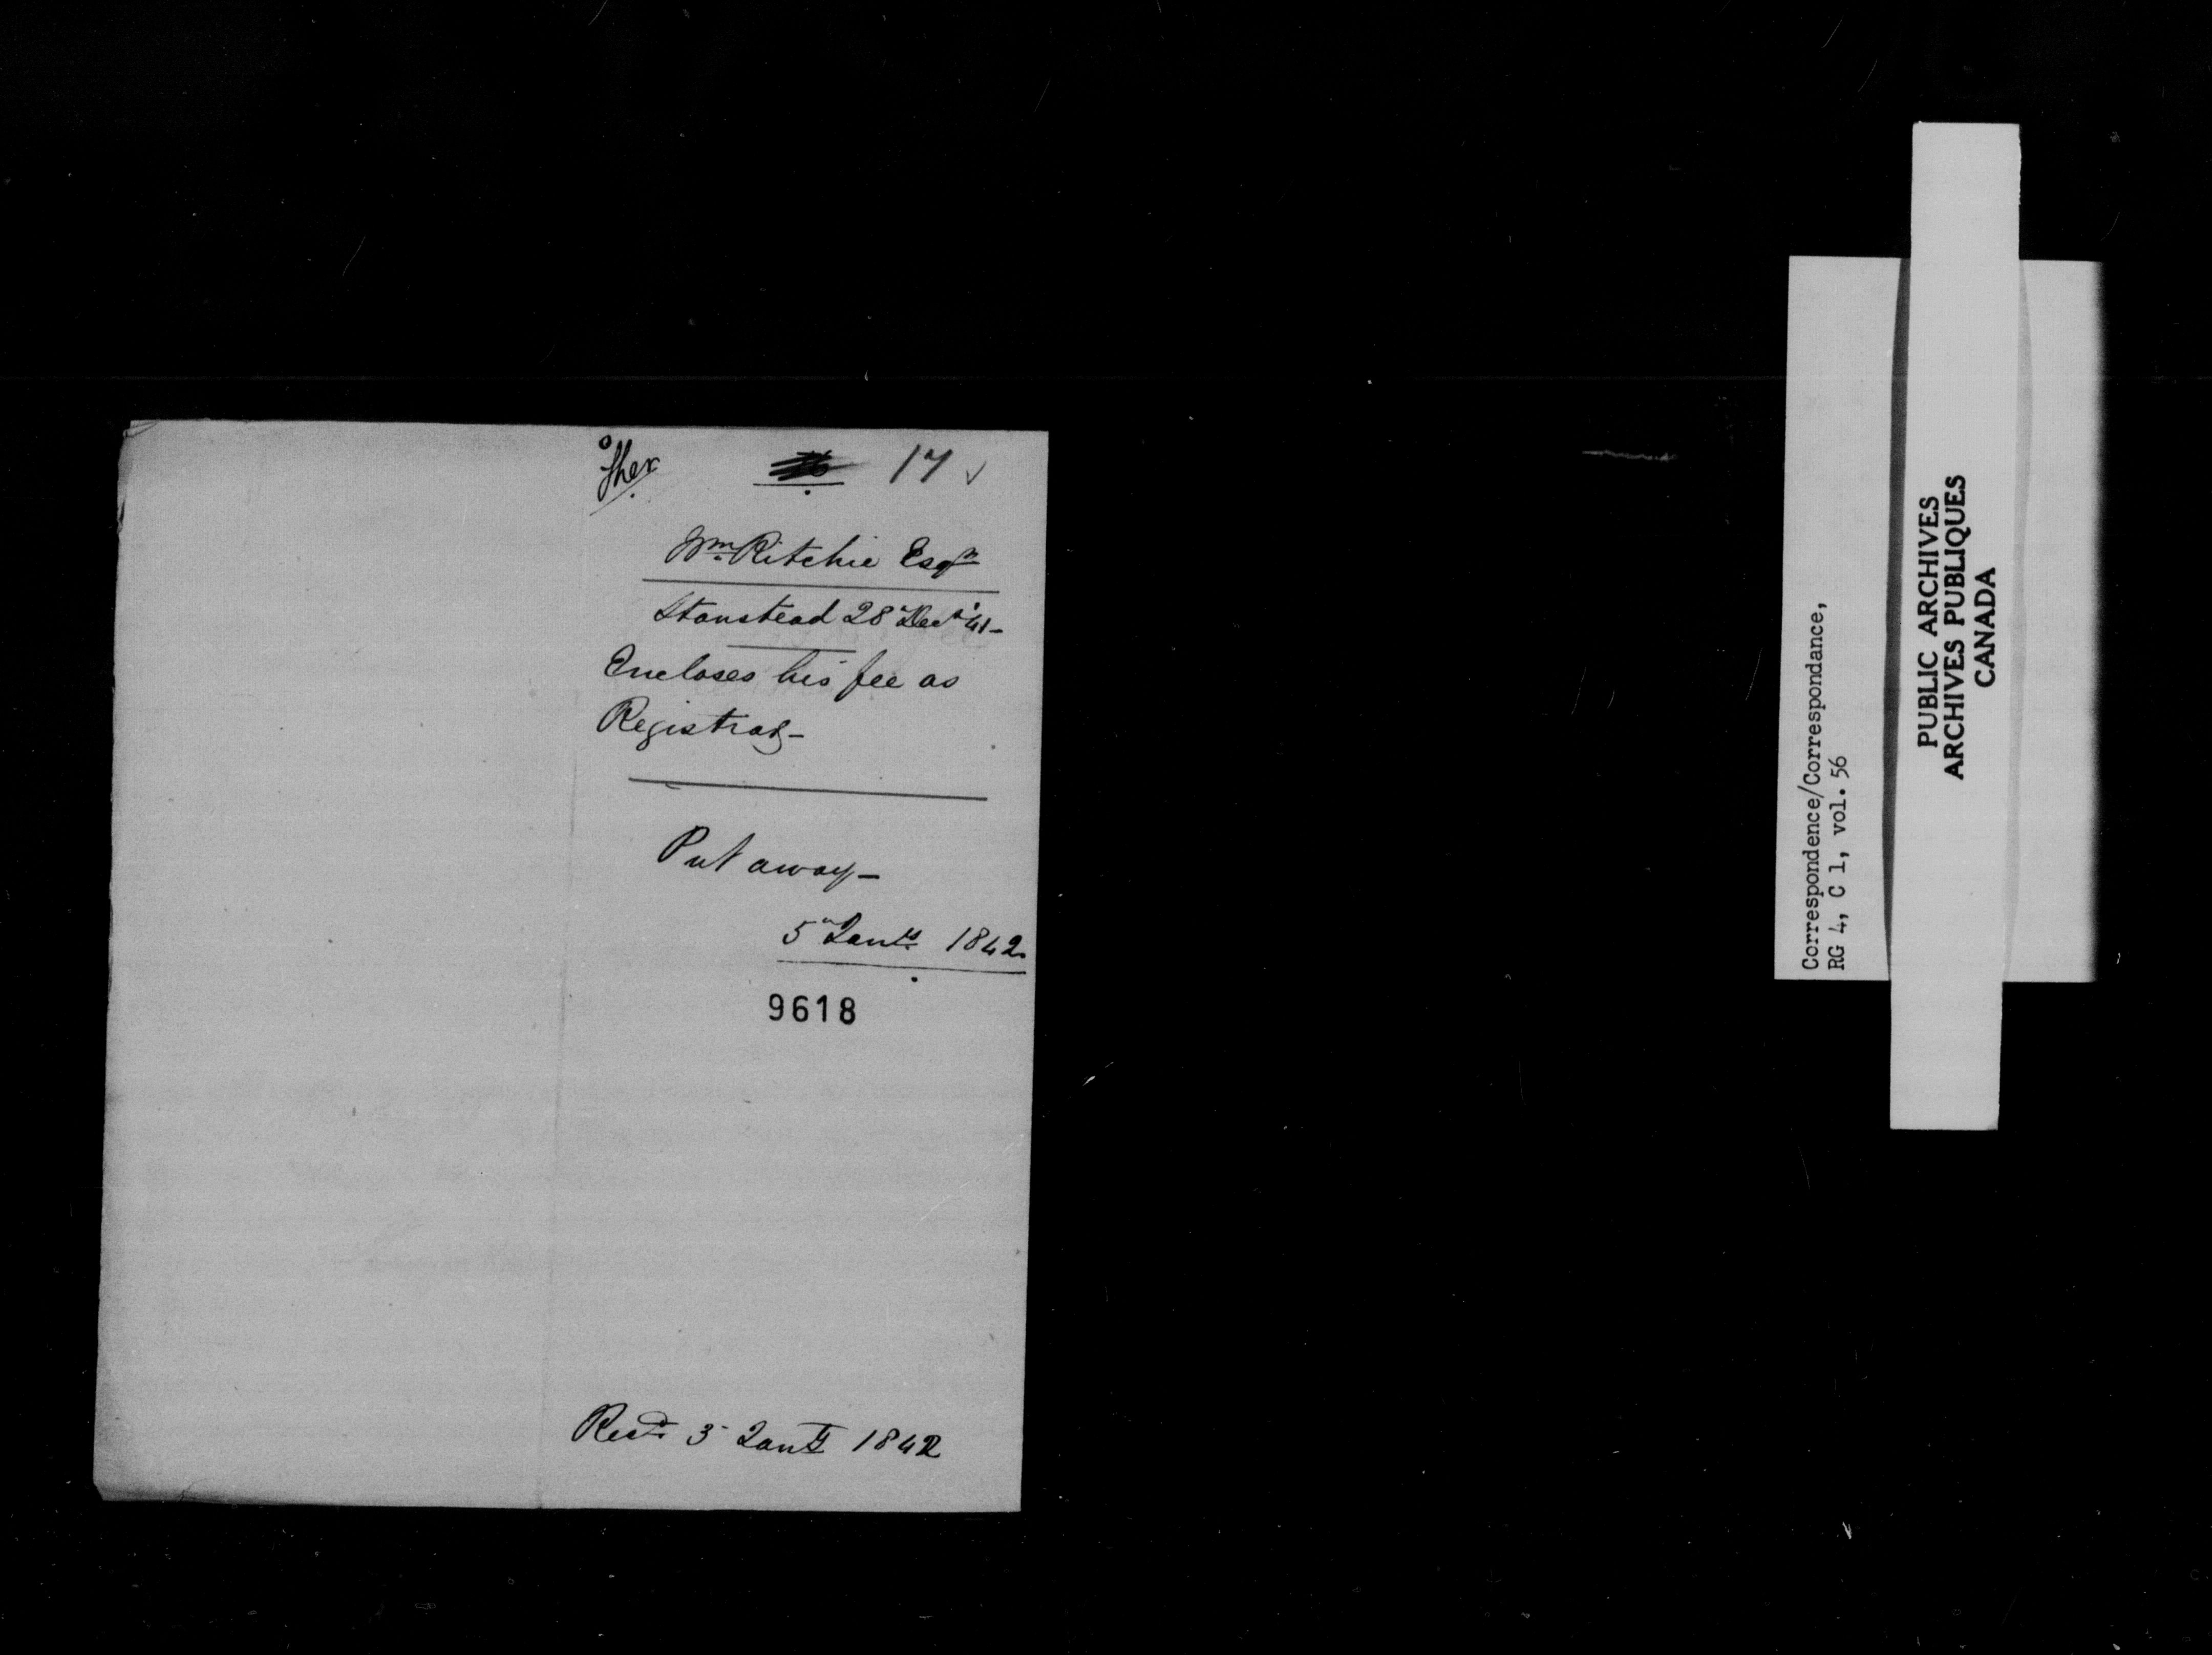 Sher 17 ✓
Wm Ritchie Esqr
Stanstead 28 Decr '41 –
Encloses his fee as
Registrar –
Put away –
5 Jany 1842
9618
Recd 3 Jany 1842
Correspondence/Correspondance,
RG 4, C 1, vol. 56
PUBLIC ARCHIVES
ARCHIVES PUBLIQUES
CANADA